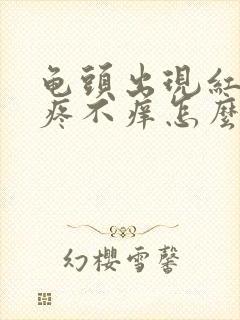 龟頭出現紅
疼不痒怎麽
幻櫻雪馨